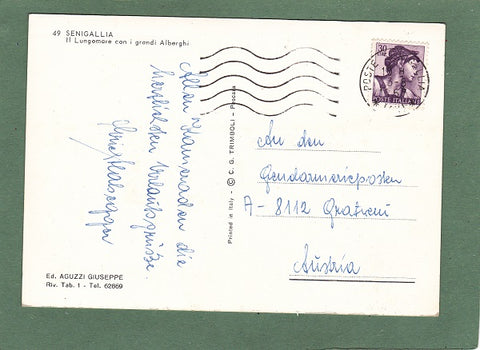 49 SENIGALLIA
Il Lungomare con i grandi Alberghi
Allen Kameraden die
herzlichsten Urlaubsgrüße
Ed. AGUZZI GIUSEPPE
Riv. Tab. 1 - Tel. 62669
Printed in Italy - © C. G. TRIMBOLI - Pescara
30
POSTE ITALIANE
POSTE
An den
Gendarmerieposten
A - 8112 Gratwein
Austria